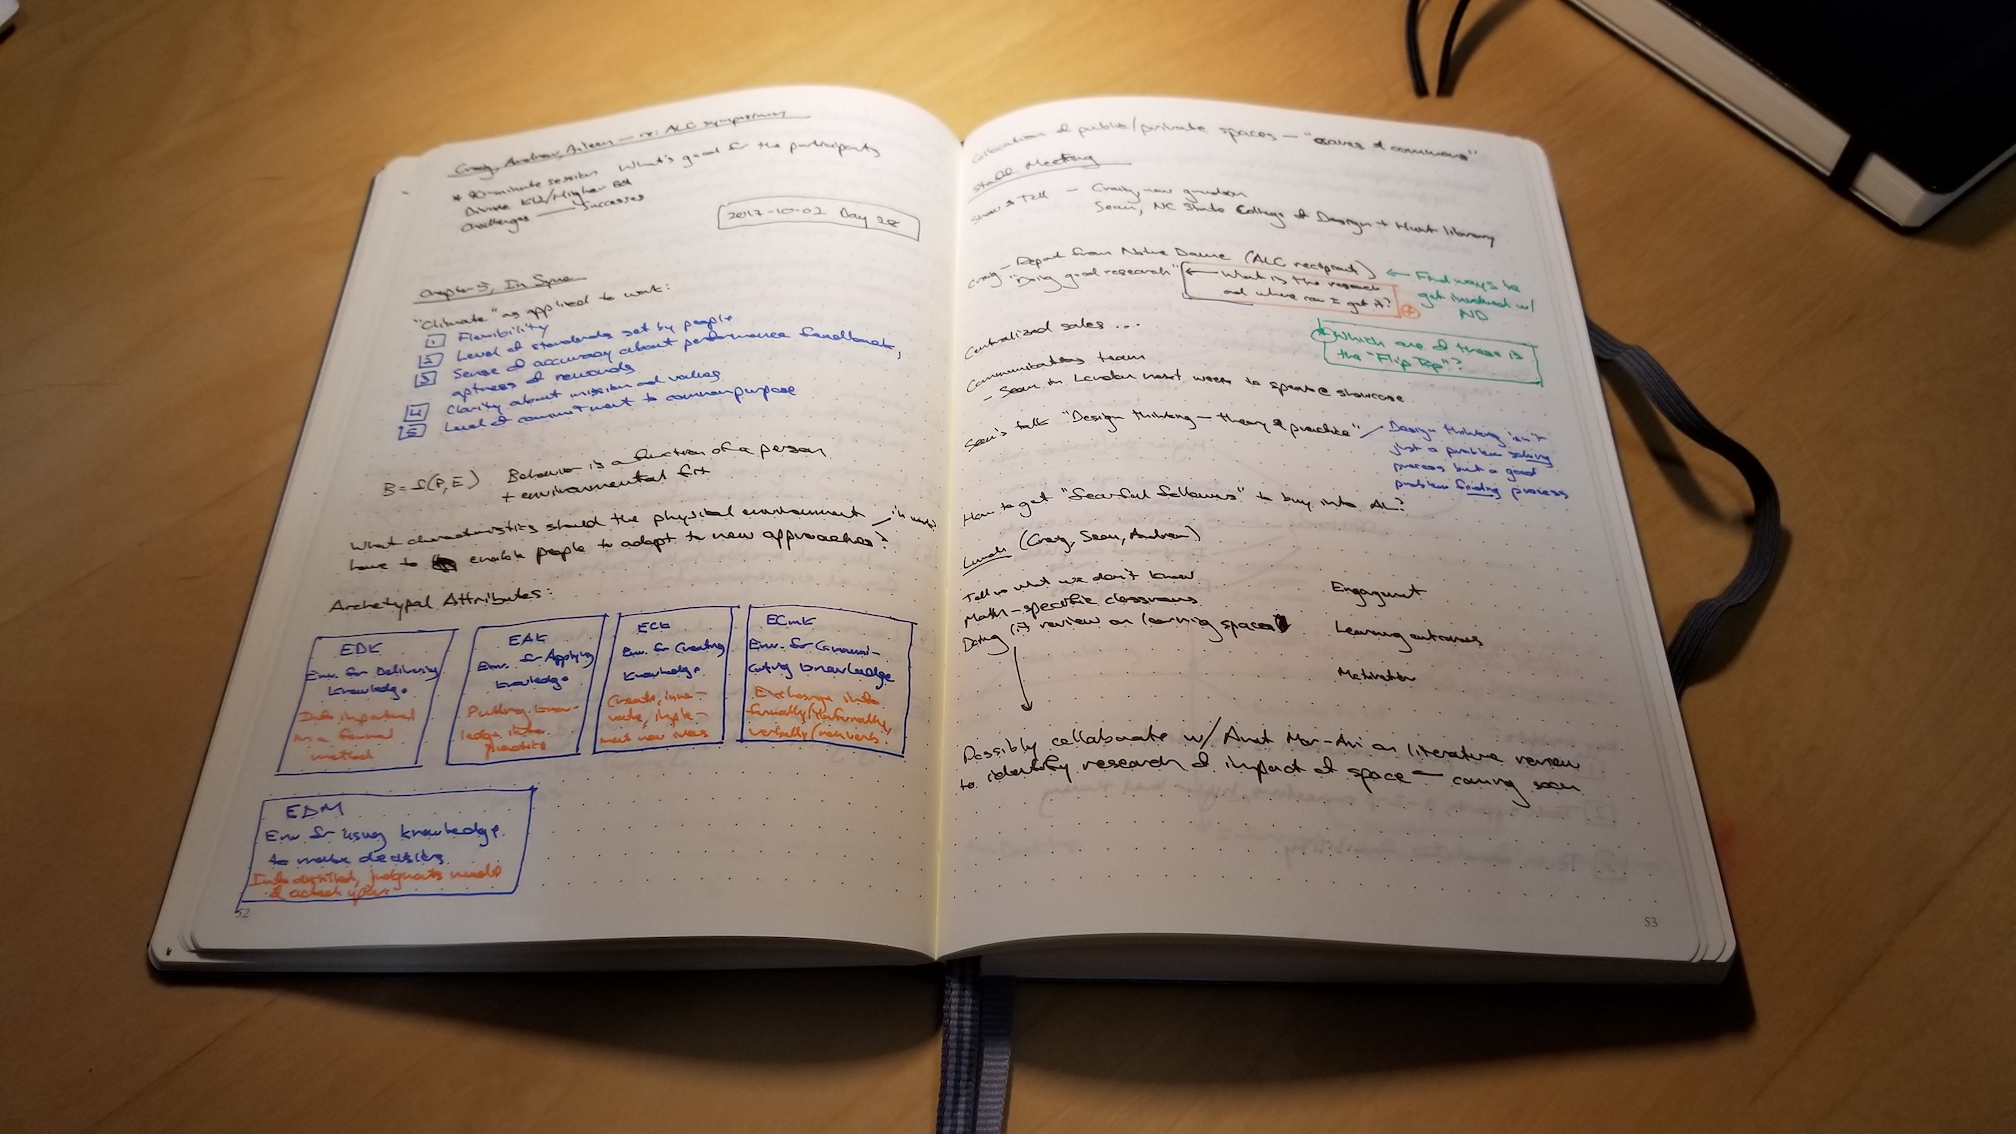 Craig, Andrew, Aileen — re: ALC Symposium
* 90-minute session What's good for the participants
Divide K12/Higher Ed
Challenges — Successes
2017-10-02 Day 28
Chapter 5, In Sync
"Climate" as applied to work:
1 Flexibility
2 Level of standards set by people
3 Sense of accuracy about performance feedback,
aptness of rewards
4 Clarity about mission and values
5 Level of commitment to common purpose
B = f(P, E) Behavior is a function of a person
+ environmental fit
What characteristics should the physical environment
have to enable people to adapt to new approaches?
Archetypal Attributes:
EDK
Env. for Delivering
Knowledge
Info imparted
in a formal
method
EAK
Env. for Applying
knowledge
Putting know-
ledge into
practice
ECK
Env. for Creating
Knowledge
Create, inno-
vate, imple-
ment new ideas
ECmK
Env. for Communi-
cating knowledge
Exchange info
formally/informally,
verbally/nonverb.
EDM
Env for using knowledge
to make decisions
Info distilled, judgments made
& acted upon
52
allocation of public/private spaces — "caves & commons"
Staff Meeting
Show & Tell — Craig, new grandson
Sean, NC State College of Design + Hunt library
Craig — Report from Notre Dame (ALC recipient)
"Doing good research" ← What is the research
and where can I get it?
← Find ways to
get involved w/
ND
Which one of these is
the "Flip Top"?
Centralized sales ...
Communications team
- Sean in London next week to speak @ showcase
Sean's talk "Design thinking — theory & practice"
Design thinking isn't
just a problem solving
process but a good
problem finding process
How to get "fearful followers" to buy into AL?
Lunch (Craig, Sean, Andrew)
Tell us what we don't know
Math-specific classrooms
Doing lit review on learning spaces
Engagement
Learning outcomes
Motivation
Possibly collaborate w/ on literature review
to identify research of impact of space — coming soon
53